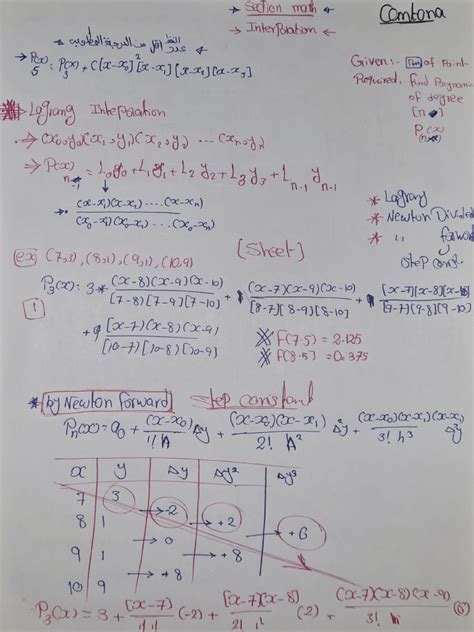 → Section math ←
→ Interpolation ←
Comtana
→ P₅(x) = P₃(x) + C[x-x₀]²[x-x₁][x-x₂][x-x₃]
Given:- of Point
Required. find Polynomial of degree
Lagrang Interpolation
→ (x₀,y₀)(x₁,y₁)(x₂,y₂) ...
→ P(x) = L₀y₀ + L₁y₁ + L₂y₂ + L₃y₃ + Lₙ₋₁ yₙ₋₁
n-1
→ (x-x₁)(x-x₂)....(x-xₙ) / (x₀-x₁)(x₀-x₂)...(x₀-xₙ)
* Lagrang
* Newton Divided
* " forward
step const.
[Sheet]
ex (7,3), (8,1), (9,1), (10,9)
P₃(x) = 3* (x-8)(x-9)(x-10) / [7-8][7-9][7-10] + (x-7)(x-9)(x-10) / [8-7][8-9][8-10] + [x-7][x-8][x-10] / [9-7](9-8)[9-10]
1
+ 9 [x-7](x-8)(x-9) / [10-7][10-8][10-9]
F(7.5) = 2.125
F[8.5] = 0.375
* by Newton Forward step constant
Pₙ(x) = a₀ + (x-x₀)/1! h Δy + (x-x₀)(x-x₁)/2! h² Δ²y + (x-x₀)(x-x₁)(x-x₂)/3! h³ Δ³y
x y Δy Δy² Δy³
7 3
→ -2
8 1 → +2
→ 0 → +6
9 1 → +8
→ +8
10 9
P₃(x) = 3 + [x-7]/1! 1 (-2) + [x-7](x-8)/2! 1² (2) + (x-7)(x-8)(x-9)/3! (6)